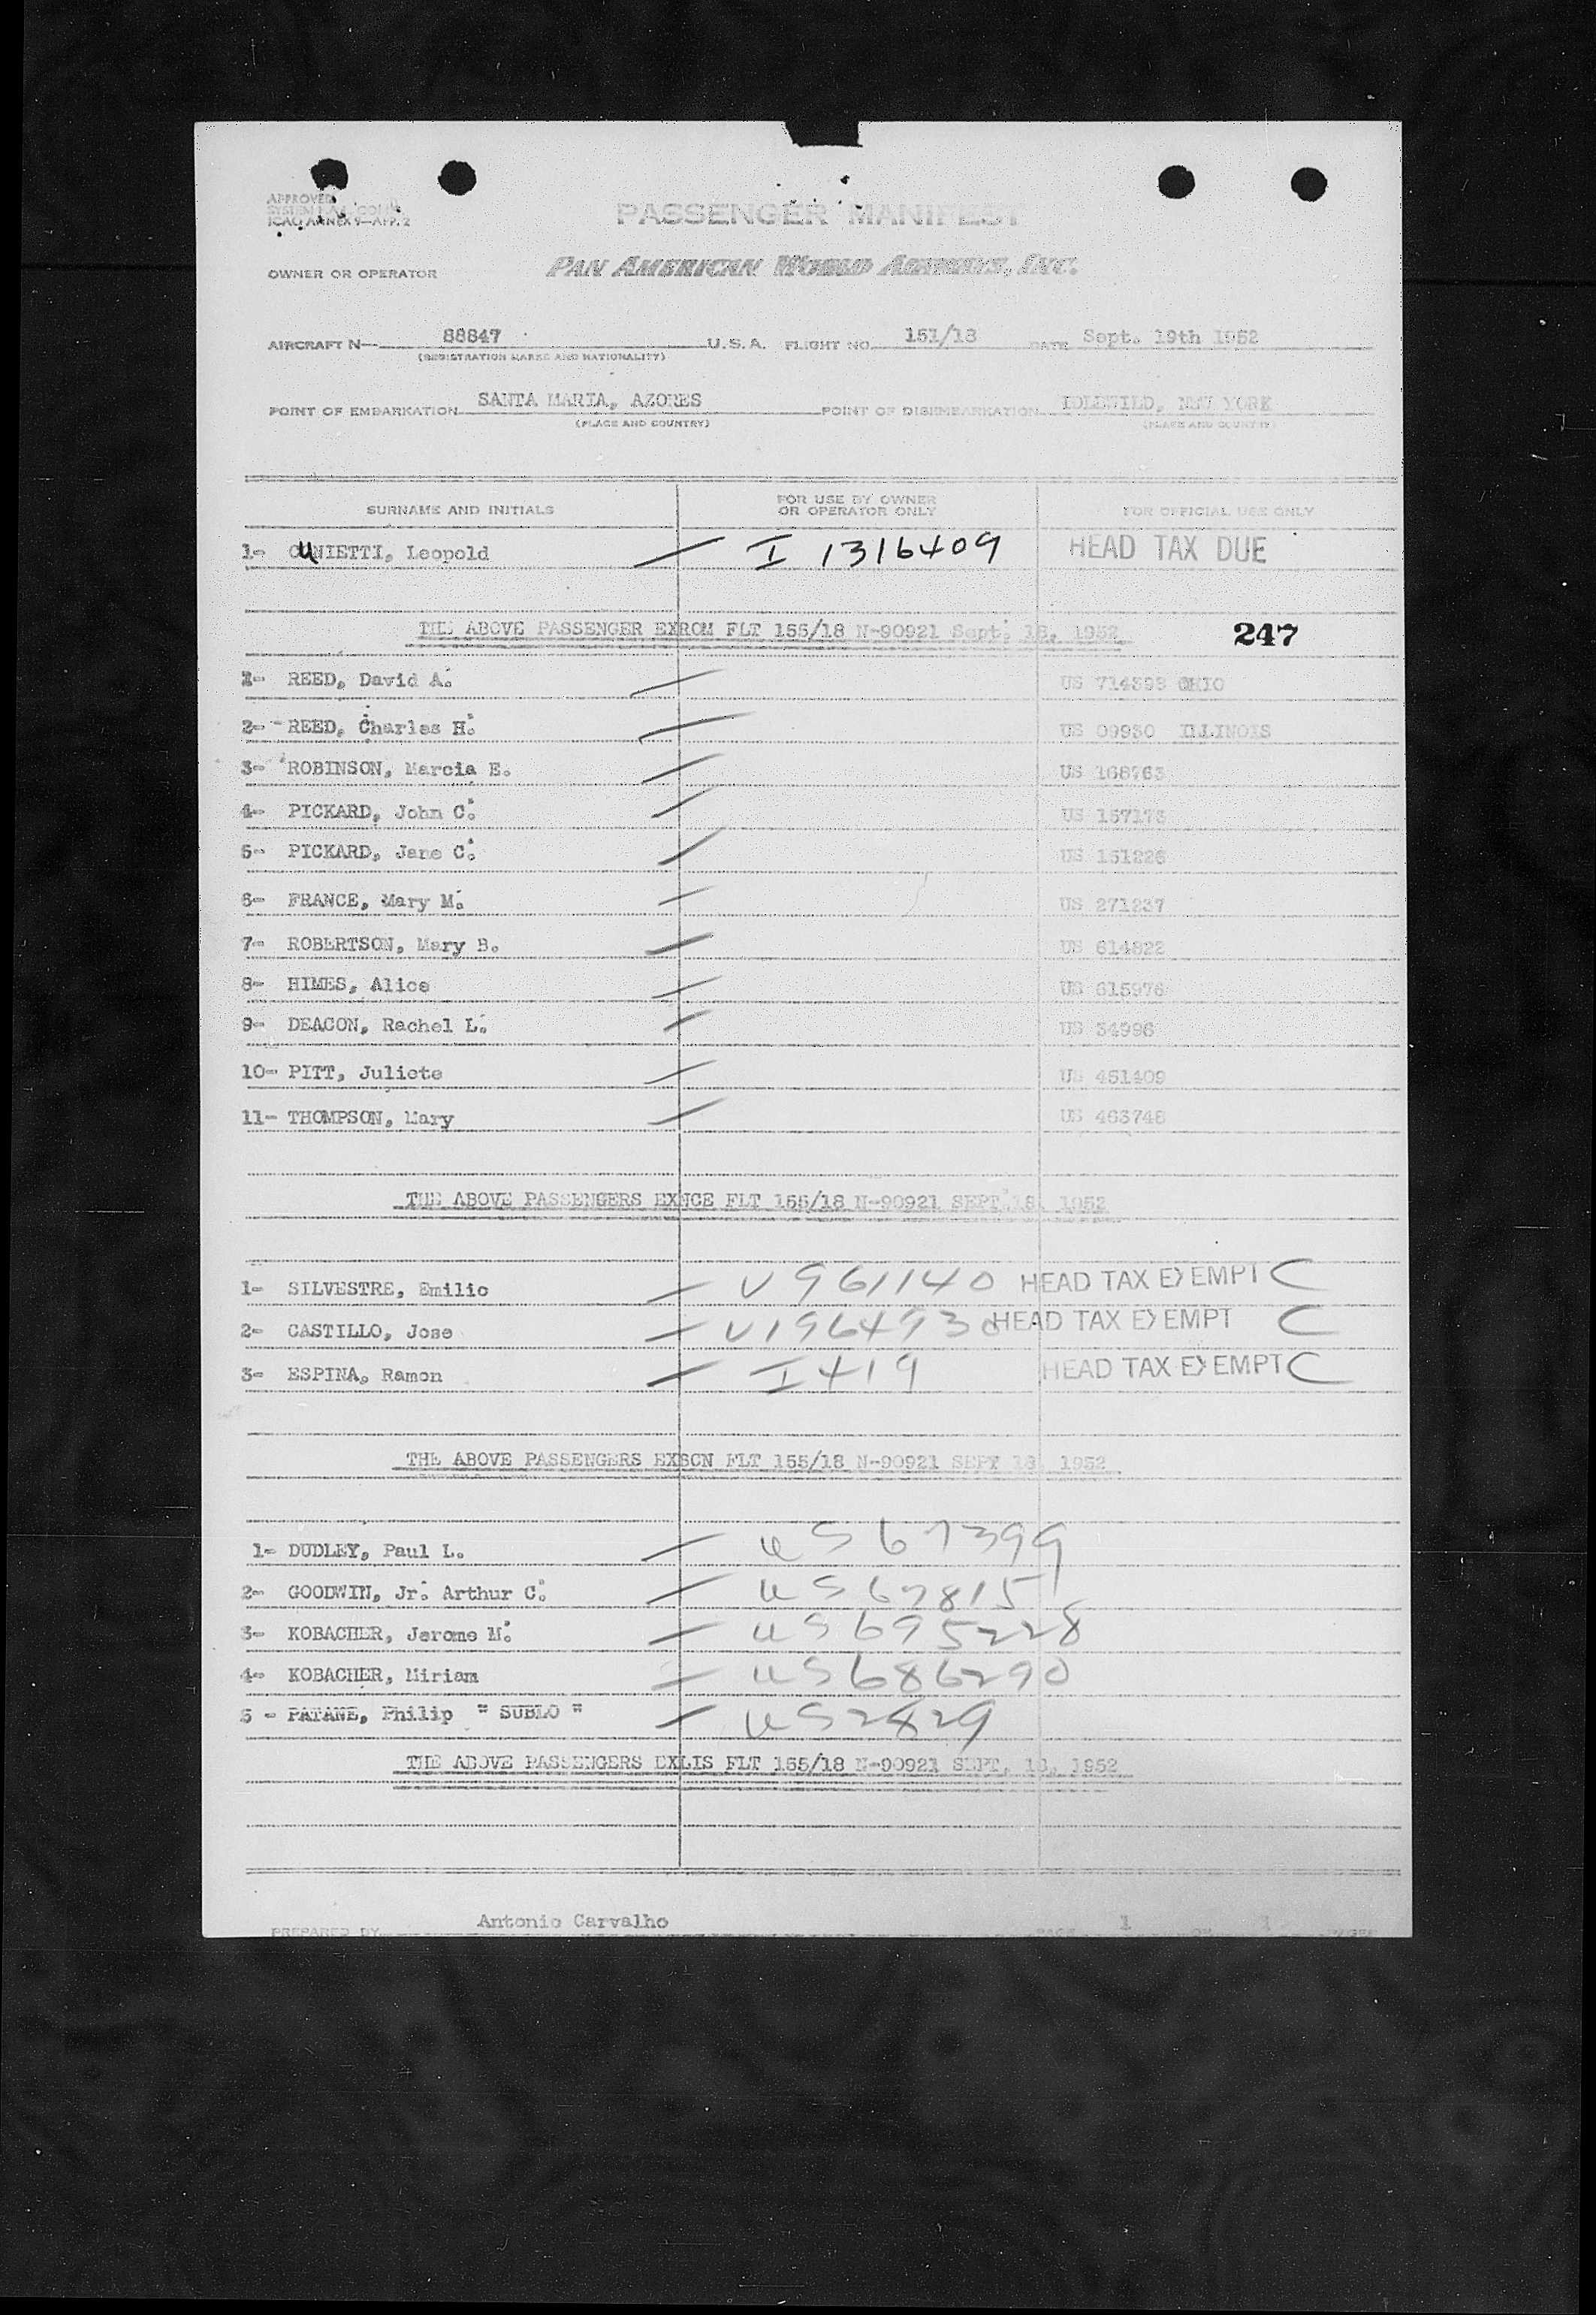 APPROVED
ICAO ANNEX 9—APP. 2
PASSENGER MANIFEST
OWNER OR OPERATOR PAN AMERICAN WORLD AIRWAYS, INC.
AIRCRAFT N— 88847 U.S.A. FLIGHT NO. 151/18 DATE Sept. 19th 1952
(REGISTRATION MARKS AND NATIONALITY)
POINT OF EMBARKATION SANTA MARIA, AZORES POINT OF DISEMBARKATION IDLEWILD, NEW YORK
(PLACE AND COUNTRY) (PLACE AND COUNTRY)
SURNAME AND INITIALS FOR USE BY OWNER OR OPERATOR ONLY FOR OFFICIAL USE ONLY
1- CUNIETTI, Leopold — I 1316409 HEAD TAX DUE
THE ABOVE PASSENGER EXROM FLT 155/18 N-90921 Sept. 18, 1952 247
1- REED, David A. US 714393 OHIO
2- REED, Charles H. US 09930 ILLINOIS
3- ROBINSON, Marcia E. US 168763
4- PICKARD, John C. US 157173
5- PICKARD, Jane C. US 151226
6- FRANCE, Mary M. US 271237
7- ROBERTSON, Mary B. US 614822
8- HIMES, Alice US 615976
9- DEACON, Rachel L. US 34996
10- PITT, Juliete US 451409
11- THOMPSON, Mary US 463748
THE ABOVE PASSENGERS EXNCE FLT 155/18 N-90921 SEPT 18, 1952
1- SILVESTRE, Emilio — V 961140 HEAD TAX EXEMPT C
2- CASTILLO, Jose — V1964930 HEAD TAX EXEMPT C
3- ESPINA, Ramon — I 419 HEAD TAX EXEMPT C
THE ABOVE PASSENGERS EXBCN FLT 155/18 N-90921 SEPT 18, 1952
1- DUDLEY, Paul L. — US 67399
2- GOODWIN, Jr. Arthur C. — US 67815
3- KOBACHER, Jerome M. — US 695228
4- KOBACHER, Miriam — US 686290
5 - PATANE, Philip " SUBLO " — US 2829
THE ABOVE PASSENGERS EXLIS FLT 155/18 N-90921 SEPT, 18, 1952
PREPARED BY Antonio Carvalho PAGE 1 OF 1